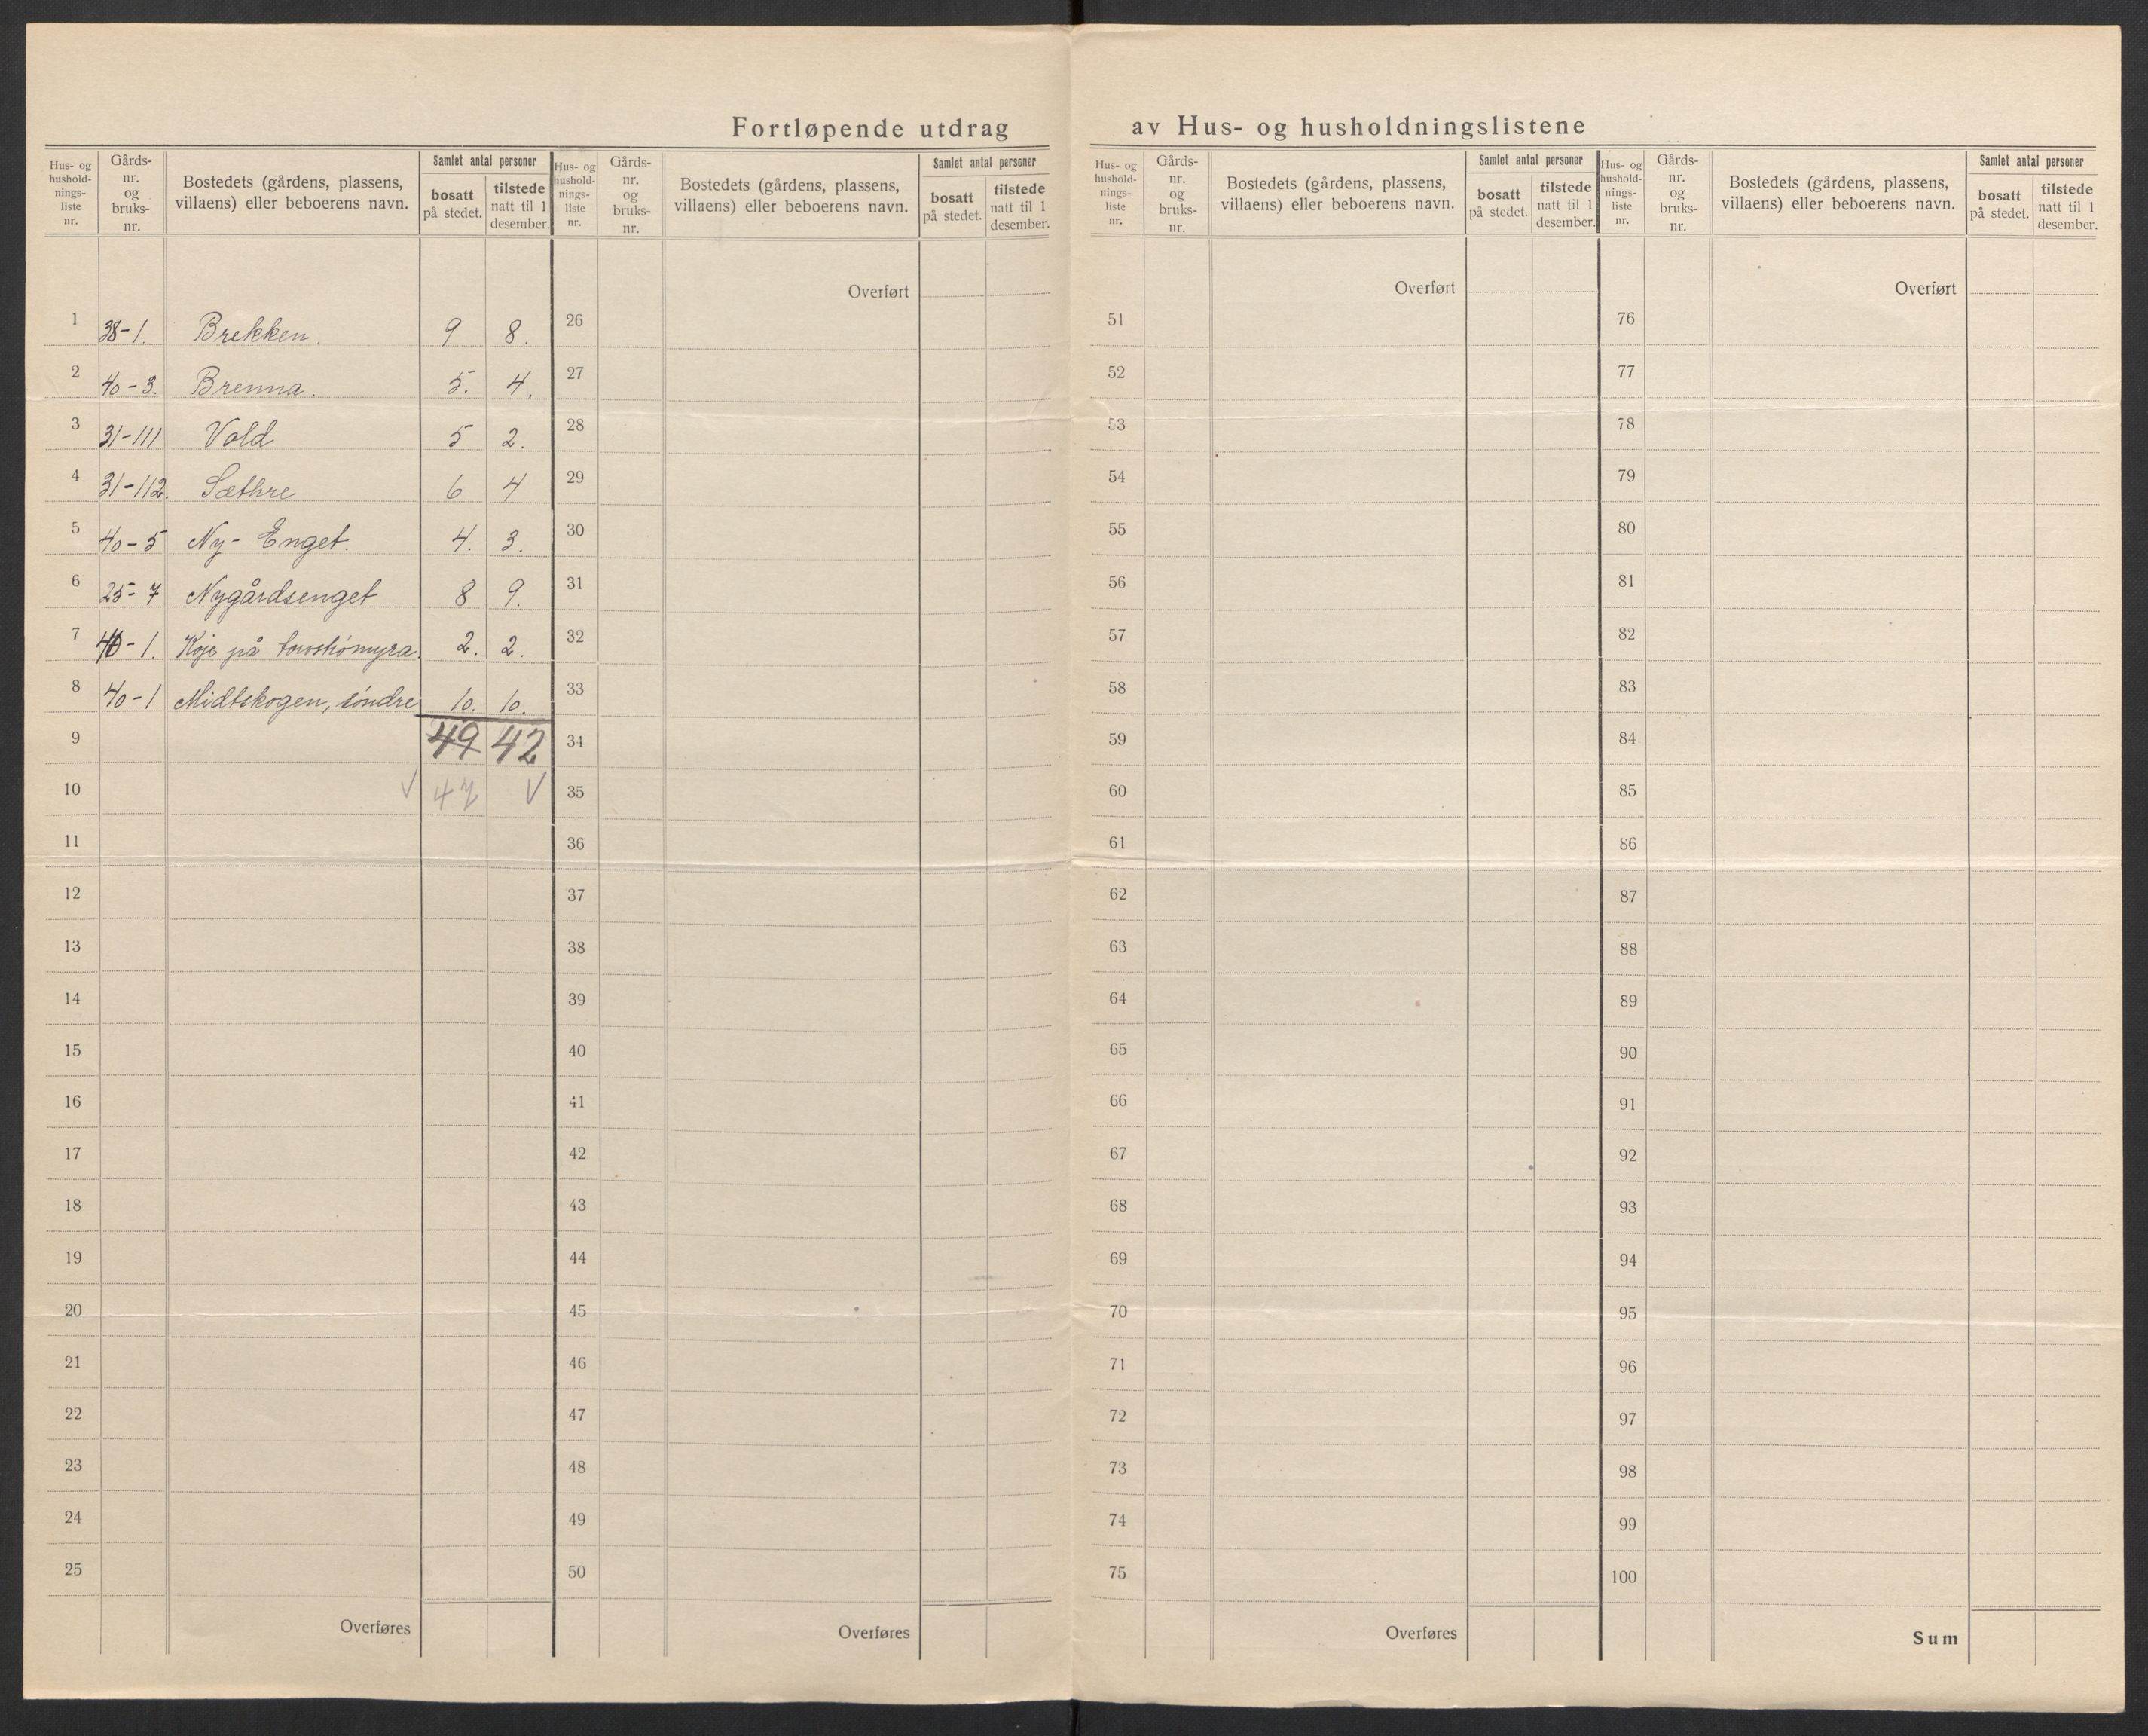 Fortløpende utdrag av Hus- og husholdningslistene
Hus- og hushold- nings- liste nr.
Gårds- nr. og bruks- nr.
Bostedets (gårdens, plassens, villaens) eller beboerens navn.
Samlet antal personer
bosatt på stedet.
tilstede natt til 1 desember.
Hus- og hushold- nings- liste nr.
Gårds- nr. og bruks- nr.
Bostedets (gårdens, plassens, villaens) eller beboerens navn.
Samlet antal personer
bosatt på stedet.
tilstede natt til 1 desember.
Hus- og hushold- nings- liste nr.
Gårds- nr. og bruks- nr.
Bostedets (gårdens, plassens, villaens) eller beboerens navn.
Samlet antal personer
bosatt på stedet.
tilstede natt til 1 desember.
Hus- og hushold- nings- liste nr.
Gårds- nr. og bruks- nr.
Bostedets (gårdens, plassens, villaens) eller beboerens navn.
Samlet antal personer
bosatt på stedet.
tilstede natt til 1 desember.
1 38-1. Brekken. 9 8.
2 40-3. Brenna. 5. 4.
3 31-111 Vold 5 2.
4 31-112. Sæthre 6 4
5 40-5 Ny-Enget. 4. 3.
6 25-7 Nygårdsenget 8 9.
7 40-1. Koje på 2. 2.
8 40-1 Midtskogen, søndre 10. 10.
9 49 42
10 √ 47 √
11
12
13
14
15
16
17
18
19
20
21
22
23
24
25
Overføres
Overført
26
27
28
29
30
31
32
33
34
35
36
37
38
39
40
41
42
43
44
45
46
47
48
49
50
Overføres
Overført
51
52
53
54
55
56
57
58
59
60
61
62
63
64
65
66
67
68
69
70
71
72
73
74
75
Overføres
Overført
76
77
78
79
80
81
82
83
84
85
86
87
88
89
90
91
92
93
94
95
96
97
98
99
100
Sum